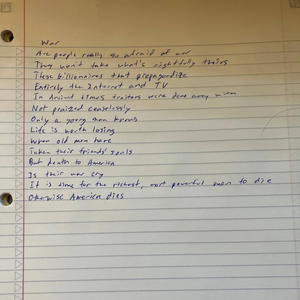 War
Are people really so afraid of war
They won't take what's rightfully theirs
These billionaires that propagandize
Entirely the Internet and TV
In Ancient times traitors were done away with
Not praized ceaselessly
Only a young man knows
Life is worth losing
When old men have
Taken their friends' souls
But death to America
Is their war cry
It is time for the richest, most powerful men to die
Otherwise America dies